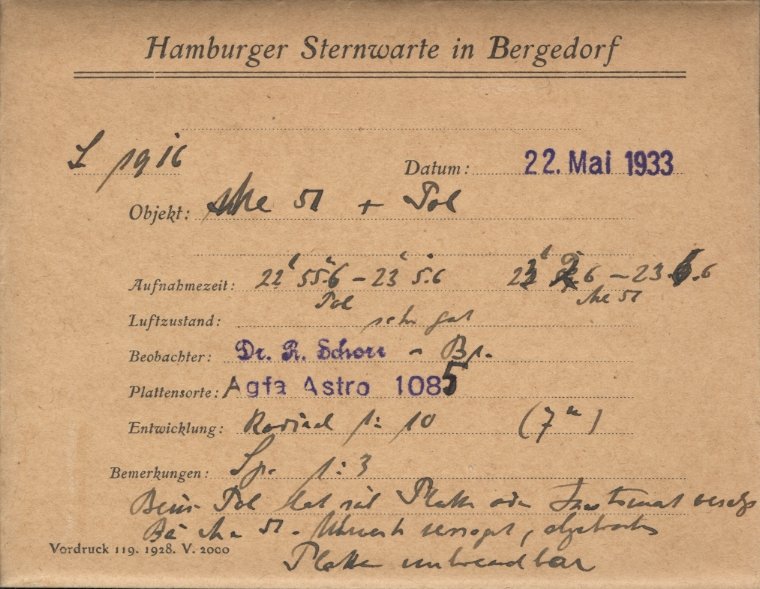 Hamburger Sternwarte in Bergedorf
L 1916
Datum: 22. Mai 1933
Objekt: 51 + Pol
Aufnahmezeit: 22h 55m.6 - 23h 5.6 23h .6 - 23 .6
Pol 51
Luftzustand: sehr gut
Beobachter: Dr. R. Schorr - Br.
Plattensorte: Agfa Astro 1085
Entwicklung: Rodinal 1:10 (7m)
Bemerkungen: Sp. 1:3
Beim Pol hat Platte oder
Bei 51 - Uhrwerk versagt,
Platte unbrauchbar
Vordruck 119. 1928. V. 2000